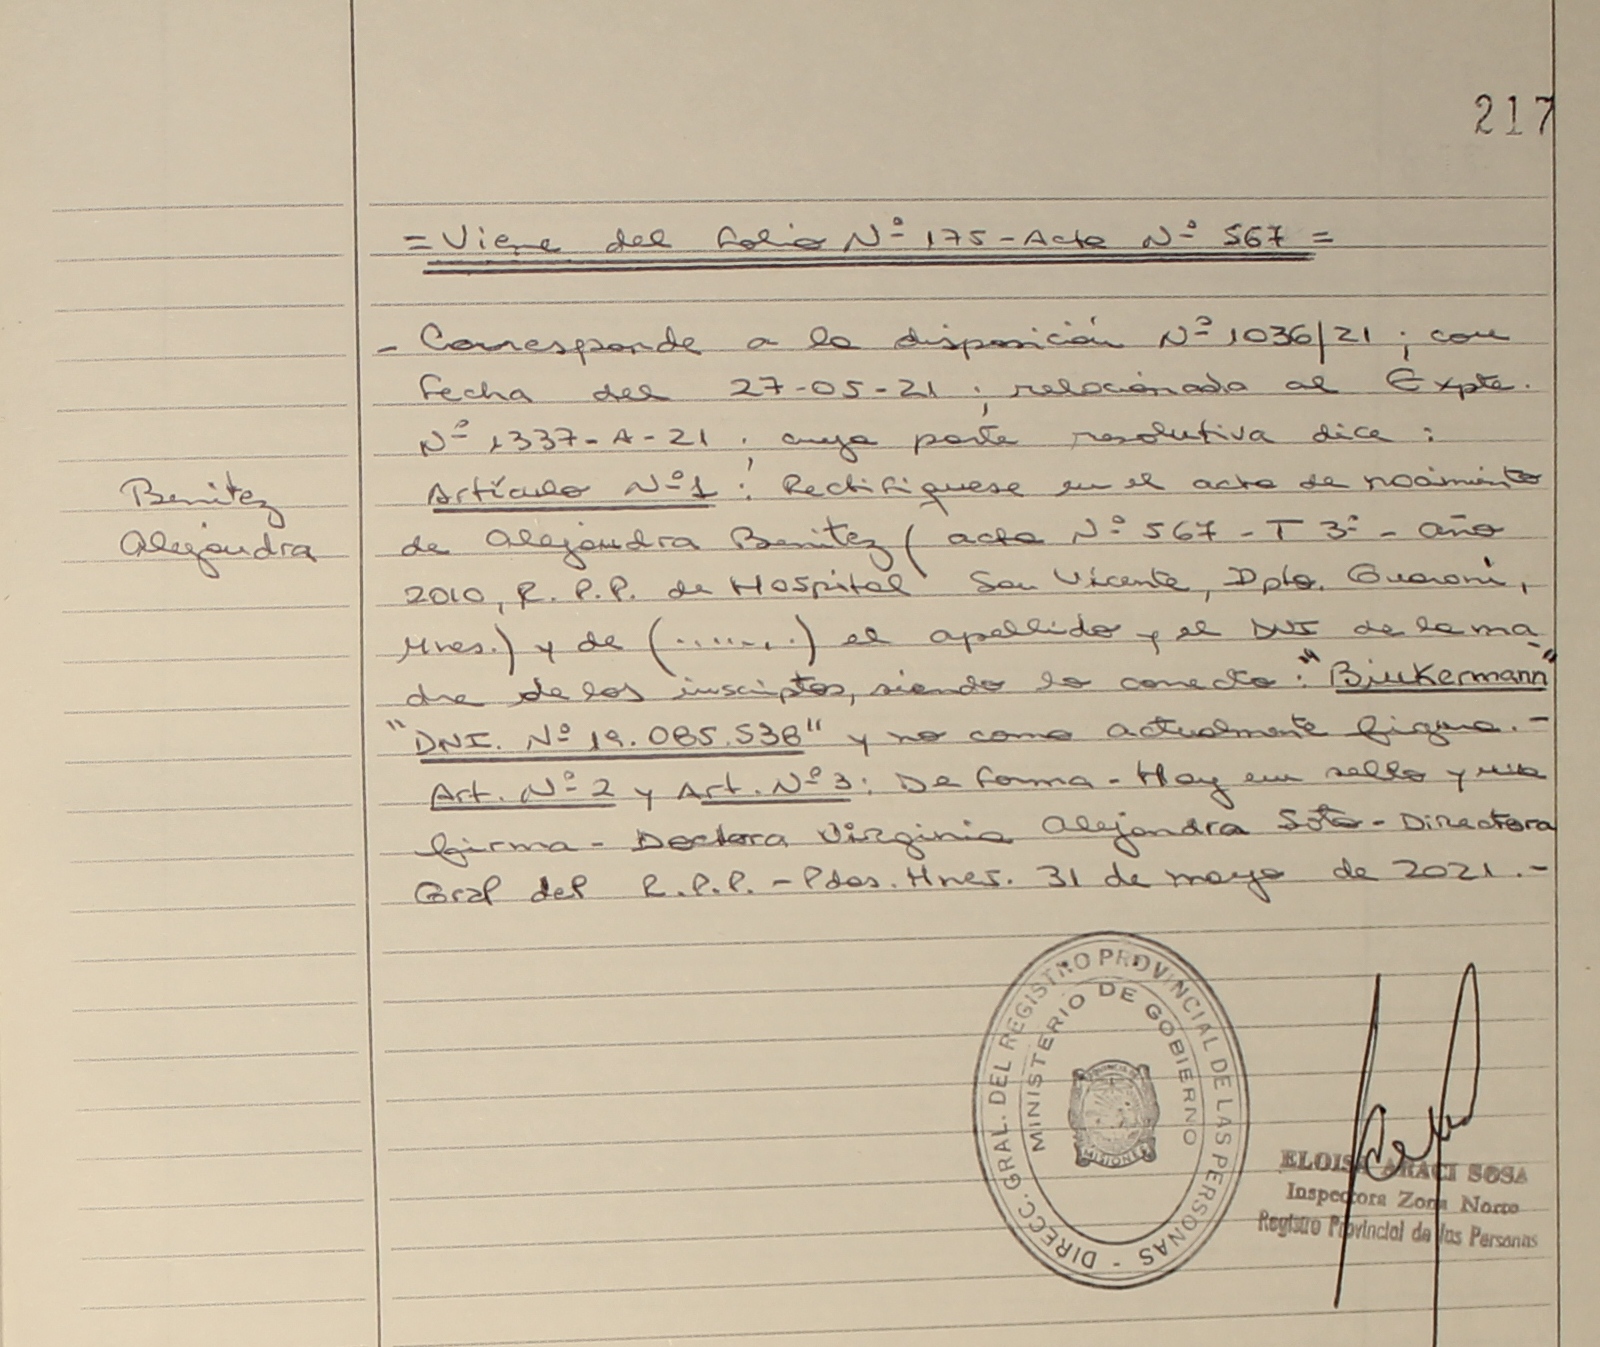 217
= Viene del Folio Nº 175 - Acta Nº 567 =
- Corresponde a la disposición Nº 1036/21 ; con
fecha del 27-05-21 ; relacionada al Expte.
Nº 1337-A-21 ; cuya parte resolutiva dice :
Benitez
Alejandra
Artículo Nº 1 : Rectifiquese en el acta de nacimiento
de Alejandra Benitez ( acta Nº 567 - T 3º - año
2010, R.P.P. de Hospital San Vicente, Dpto. Guaraní,
Mnes.) y de (.......) el apellido y el DNI de la ma
dre de los inscriptos, siendo lo correcto : "Biukermann"
"DNI. Nº 19.085.538" y no como actualmente figura. -
Art. Nº 2 y Art. Nº 3 : De forma - Hay un sello y una
firma - Doctora Virginia Alejandra Soto - Directora
Gral del R.P.P. - Pdas. Mnes. 31 de mayo de 2021 . -
DIRECC. GRAL. DEL REGISTRO PROVINCIAL DE LAS PERSONAS -
MINISTERIO DE GOBIERNO
MISIONES
ELOISA ARACI SOSA
Inspectora Zona Norte
Registro Provincial de las Personas